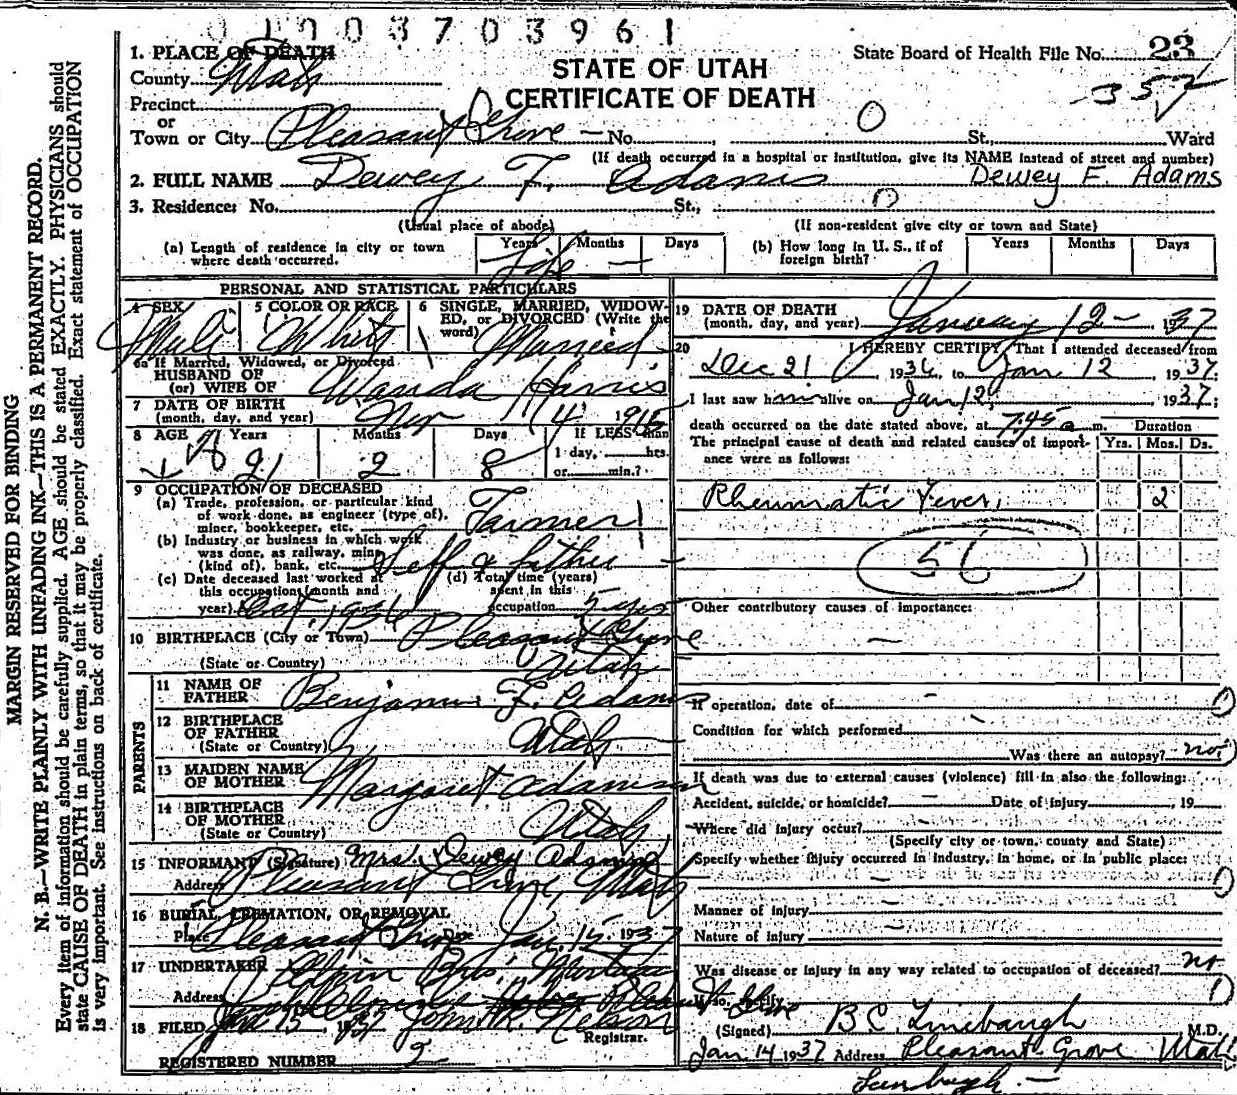 0 1 0 0 3 7 0 3 9 6 1
1. PLACE OF DEATH
State Board of Health File No. 23
County Utah
STATE OF UTAH
357
Precinct
CERTIFICATE OF DEATH
or
Town or City Pleasant Grove — No. 0 St. Ward
(If death occurred in a hospital or institution, give its NAME instead of street and number)
2. FULL NAME Dewey F. Adams Dewey F. Adams
3. Residence: No. St., 0
(Usual place of abode) (If non-resident give city or town and State)
(a) Length of residence in city or town where death occurred. Years Months Days Life —
(b) How long in U. S., if of foreign birth? Years Months Days
PERSONAL AND STATISTICAL PARTICULARS
4 SEX Male
5 COLOR OR RACE White
6 SINGLE, MARRIED, WIDOWED, or DIVORCED (Write the word) Married
6a If Married, Widowed, or Divorced
HUSBAND OF
(or) WIFE OF Wanda Harris
7 DATE OF BIRTH
(month, day, and year) Nov 4 1915
8 AGE Years Months Days If LESS than
21 2 8 1 day, hrs.
or min.?
9 OCCUPATION OF DECEASED
(a) Trade, profession, or particular kind
of work done, as engineer (type of),
miner, bookkeeper, etc. Farmer
(b) Industry or business in which work
was done, as railway, mine
(kind of), bank, etc. Self & father
(c) Date deceased last worked at
this occupation (month and
year) Oct. 1936
(d) Total time (years)
spent in this
occupation 5 yrs
10 BIRTHPLACE (City or Town) Pleasant Grove
(State or Country) Utah
PARENTS
11 NAME OF
FATHER Benjamin F. Adams
12 BIRTHPLACE
OF FATHER
(State or Country) Utah
13 MAIDEN NAME
OF MOTHER Margaret Adamson
14 BIRTHPLACE
OF MOTHER
(State or Country) Utah
15 INFORMANT (Signature) Mrs. Dewey Adams
Address Pleasant Grove, Utah
16 BURIAL, CREMATION, OR REMOVAL
Place Pleasant Grove Date Jan. 15, 1937
17 UNDERTAKER Bros. Mortuary
Address Pleasant Grove
18 FILED Jan 15, 1937 John R. Nelson
Registrar.
REGISTERED NUMBER 2
19 DATE OF DEATH
(month, day, and year) January 12 — 1937
20 I HEREBY CERTIFY, That I attended deceased from
Dec 21 1936, to Jan 12 1937
I last saw him alive on Jan 12, 1937;
death occurred on the date stated above, at 7:45 a m. Duration
The principal cause of death and related causes of importance were as follows: Yrs. Mos. Ds.
Rheumatic Fever. 2
56
Other contributory causes of importance:
—
If operation, date of -
Condition for which performed
Was there an autopsy? no
If death was due to external causes (violence) fill in also the following:
Accident, suicide, or homicide? — Date of injury , 19
Where did injury occur? —
(Specify city or town, county and State)
Specify whether injury occurred in industry, in home, or in public place:
—
Manner of injury —
Nature of injury —
Was disease or injury in any way related to occupation of deceased? no
If so, specify
(Signed) B. C. Linebaugh M.D.
Jan 14 1937 Address Pleasant Grove Utah
MARGIN RESERVED FOR BINDING
N. B.—WRITE PLAINLY WITH UNFADING INK—THIS IS A PERMANENT RECORD.
Every item of information should be carefully supplied. AGE should be stated EXACTLY. PHYSICIANS should
state CAUSE OF DEATH in plain terms, so that it may be properly classified. Exact statement of OCCUPATION
is very important. See instructions on back of certificate.